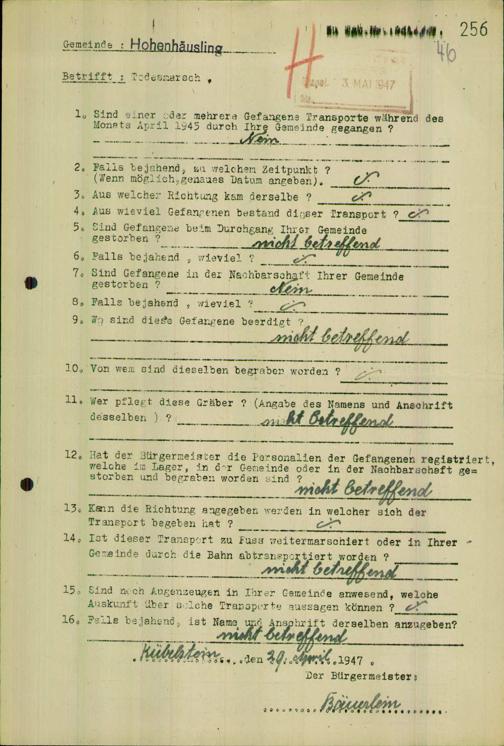 256
46
Gemeinde : Hohenhäusling
3. MAI 1947
Betrifft : Todesmarsch .
1. Sind einer oder mehrere Gefangene Transporte während des
Monats April 1945 durch Ihre Gemeinde gegangen ?
Nein
2. Falls bejahend, zu welchem Zeitpunkt ?
(Wenn möglich,genaues Datum angeben).
3. Aus welcher Richtung kam derselbe ?
4. Aus wieviel Gefangenen bestand dieser Transport ?
5. Sind Gefangene beim Durchgang Ihrer Gemeinde
gestorben ? nicht betreffend
6. Falls bejahend , wieviel ?
7. Sind Gefangene in der Nachbarschaft Ihrer Gemeinde
gestorben ? Nein
8. Falls bejahend , wieviel ?
9. Wo sind diese Gefangene beerdigt ?
nicht betreffend
10. Von wem sind dieselben begraben worden ?
11. Wer pflegt diese Gräber ? (Angabe des Namens und Anschrift
desselben ) ? nicht betreffend
12. Hat der Bürgermeister die Personalien der Gefangenen registriert,
welche im Lager, in der Gemeinde oder in der Nachbarschaft ge=
storben und begraben worden sind ?
nicht betreffend
13. Kann die Richtung angegeben werden in welcher sich der
Transport begeben hat ?
14. Ist dieser Transport zu Fuss weitermarschiert oder in Ihrer -
Gemeinde durch die Bahn abtransportiert worden ?
nicht betreffend
15. Sind noch Augenzeugen in Ihrer Gemeinde anwesend, welche
Auskunft über solche Transporte aussagen können ?
16. Falls bejahend, ist Name und Anschrift derselben anzugeben?
nicht betreffend
Kübelstein, den 29. April 1947 .
Der Bürgermeister:
Bäuerlein